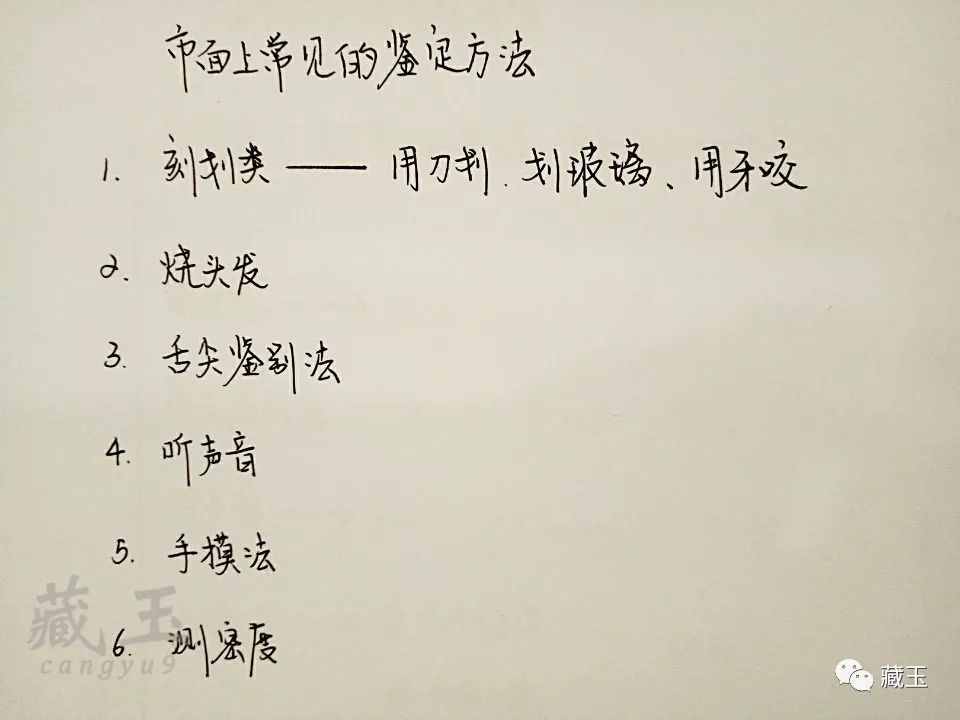 市面上常见的鉴定方法
1. 刻划类 —— 用刀划、划玻璃、用牙咬
2. 烧头发
3. 舌尖鉴别法
4. 听声音
5. 手摸法
6. 测密度
藏玉
cangyu9
藏玉